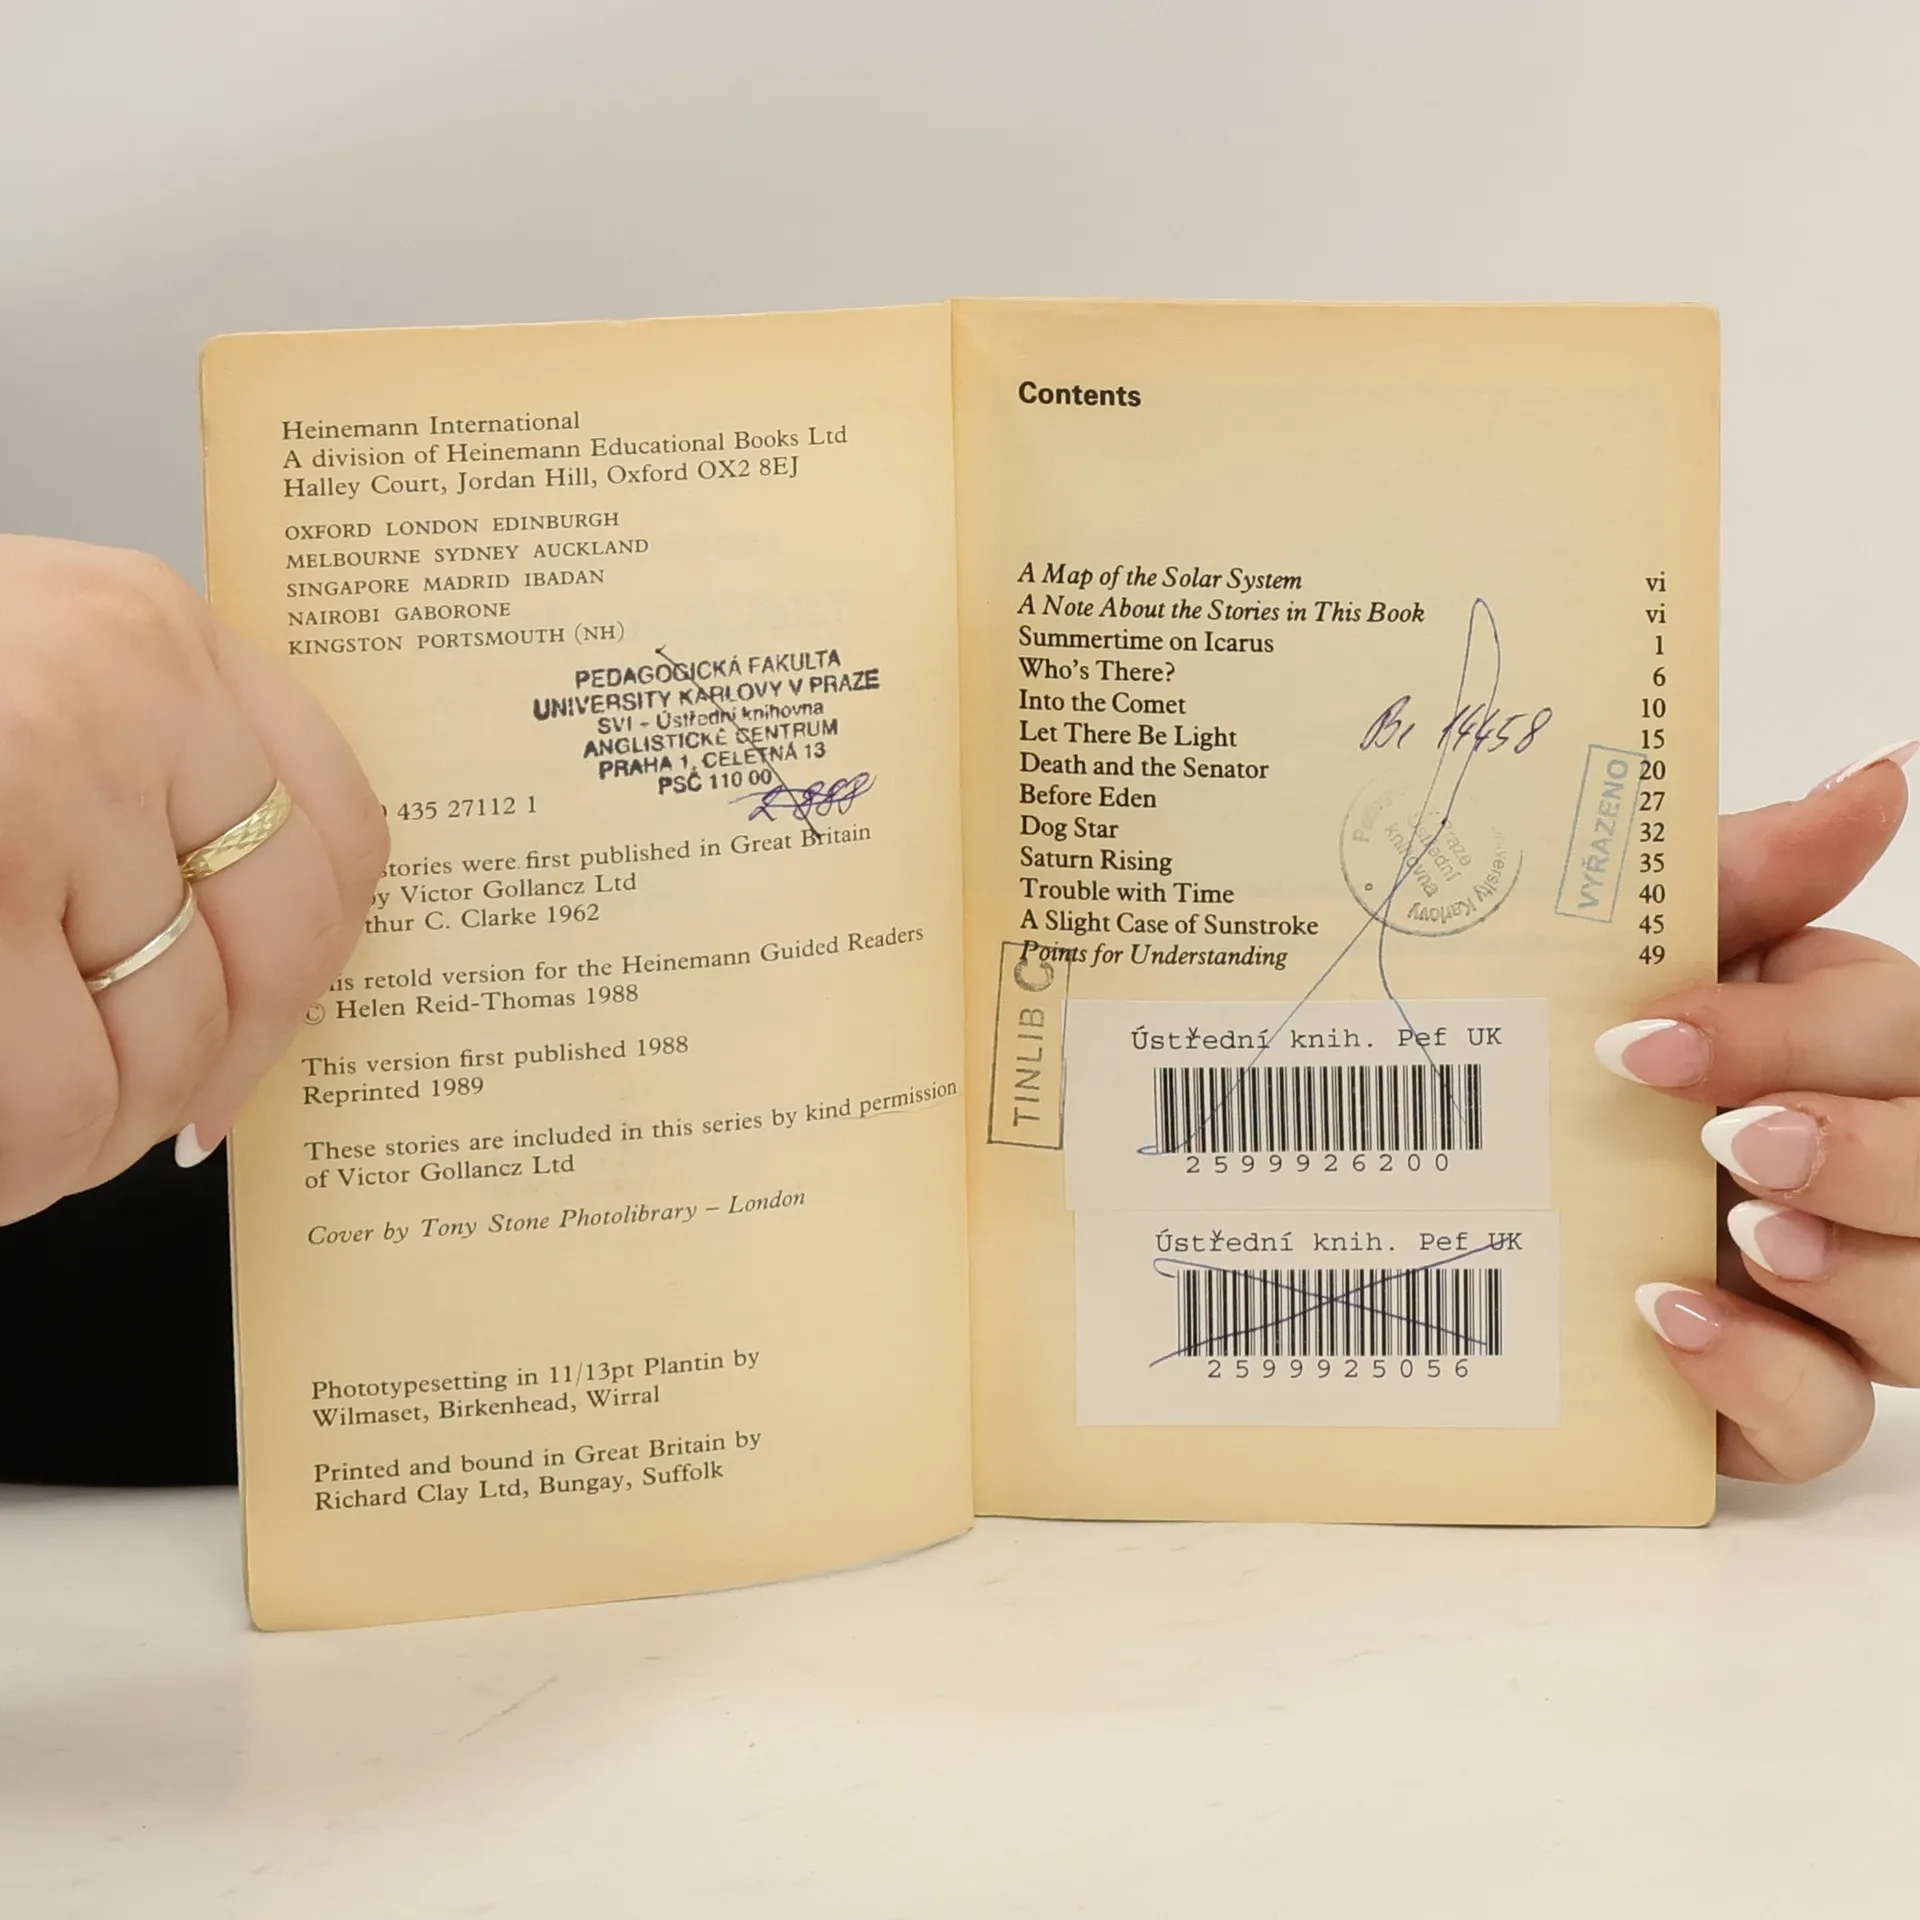 Heinemann International
A division of Heinemann Educational Books Ltd
Halley Court, Jordan Hill, Oxford OX2 8EJ
OXFORD LONDON EDINBURGH
MELBOURNE SYDNEY AUCKLAND
SINGAPORE MADRID IBADAN
NAIROBI GABORONE
KINGSTON PORTSMOUTH (NH)
PEDAGOGICKÁ FAKULTA
UNIVERSITY KARLOVY V PRAZE
SVI - Ústřední knihovna
ANGLISTICKÉ CENTRUM
PRAHA 1, CELETNÁ 13
PSČ 110 00
2-888
435 27112 1
stories were first published in Great Britain
by Victor Gollancz Ltd
thur C. Clarke 1962
is retold version for the Heinemann Guided Readers
© Helen Reid-Thomas 1988
This version first published 1988
Reprinted 1989
These stories are included in this series by kind permission
of Victor Gollancz Ltd
Cover by Tony Stone Photolibrary – London
Phototypesetting in 11/13pt Plantin by
Wilmaset, Birkenhead, Wirral
Printed and bound in Great Britain by
Richard Clay Ltd, Bungay, Suffolk
Contents
A Map of the Solar System vi
A Note About the Stories in This Book vi
Summertime on Icarus 1
Who's There? 6
Into the Comet 10
Let There Be Light 15
Death and the Senator 20
Before Eden 27
Dog Star 32
Saturn Rising 35
Trouble with Time 40
A Slight Case of Sunstroke 45
Points for Understanding 49
14458
VYŘAZENO
Ústřední
knihovna
TINLIB C
Ústřední knih. Pef UK
2599926200
Ústřední knih. Pef UK
2599925056